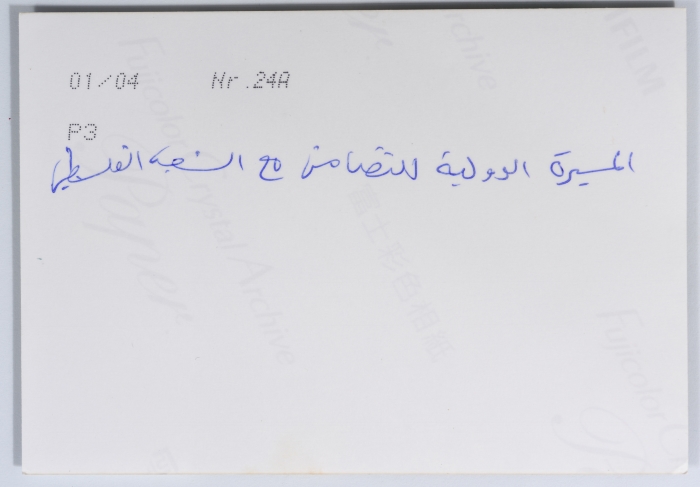 01/04 Nr.24A
P3
المسيرة الدولية للتضامن مع الشعب الفلسطيني
Fujicolor Crystal Archive
Archive
FILM
士彩色相紙
Fujicolor